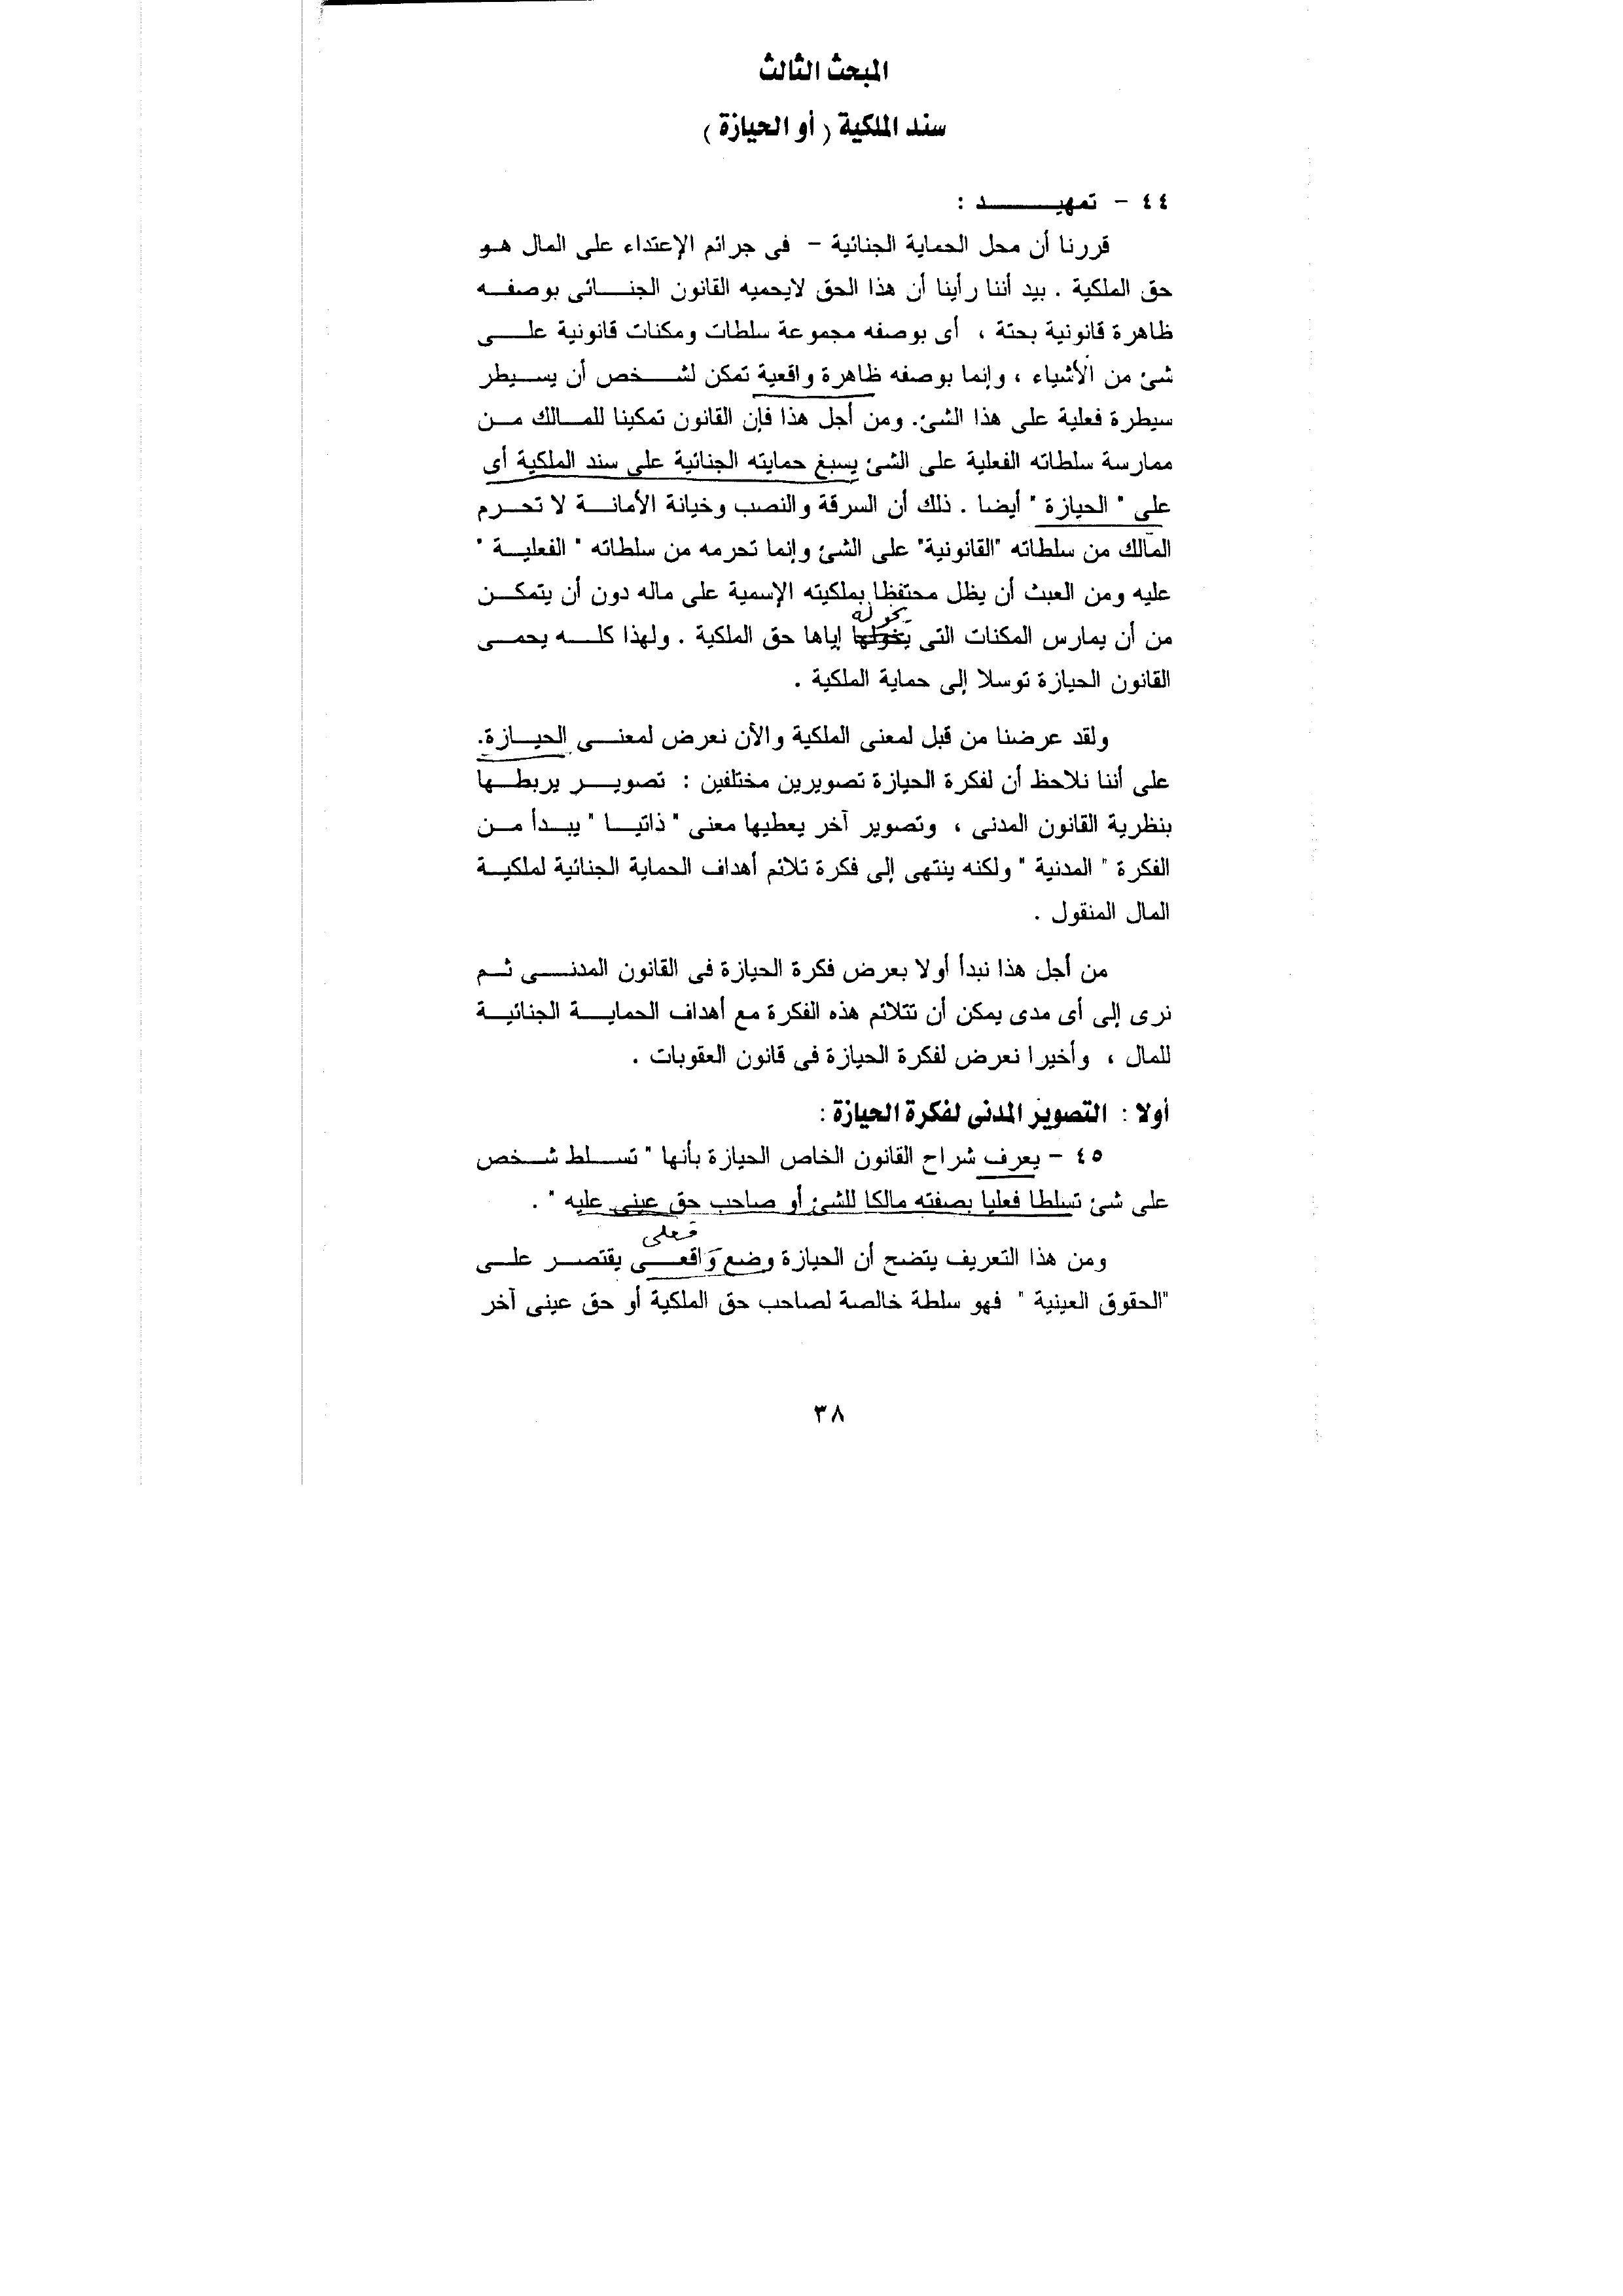 المبحث الثالث
سند الملكية ( أو الحيازة )
٤٤ - تمهيد :
قررنا أن محل الحماية الجنائية - فى جرائم الإعتداء على المال هو
حق الملكية . بيد أننا رأينا أن هذا الحق لايحميه القانون الجنائى بوصفه
ظاهرة قانونية بحتة ، أى بوصفه مجموعة سلطات ومكنات قانونية على
شئ من الأشياء ، وإنما بوصفه ظاهرة واقعية تمكن لشخص أن يسيطر
سيطرة فعلية على هذا الشئ. ومن أجل هذا فإن القانون تمكينا للمالك من
ممارسة سلطاته الفعلية على الشئ يسبغ حمايته الجنائية على سند الملكية أى
على " الحيازة " أيضا . ذلك أن السرقة والنصب وخيانة الأمانة لا تحرم
المالك من سلطاته "القانونية" على الشئ وإنما تحرمه من سلطاته " الفعلية "
عليه ومن العبث أن يظل محتفظا بملكيته الإسمية على ماله دون أن يتمكن
يخوله
من أن يمارس المكنات التى يخولها إياها حق الملكية . ولهذا كله يحمى
القانون الحيازة توسلا إلى حماية الملكية .
ولقد عرضنا من قبل لمعنى الملكية والأن نعرض لمعنى الحيازة.
على أننا نلاحظ أن لفكرة الحيازة تصويرين مختلفين : تصوير يربطها
بنظرية القانون المدنى ، وتصوير آخر يعطيها معنى " ذاتيا " يبدأ من
الفكرة " المدنية " ولكنه ينتهى إلى فكرة تلائم أهداف الحماية الجنائية لملكية
المال المنقول .
من أجل هذا نبدأ أولا بعرض فكرة الحيازة فى القانون المدنى ثم
نرى إلى أى مدى يمكن أن تتلائم هذه الفكرة مع أهداف الحماية الجنائية
للمال ، وأخيرا نعرض لفكرة الحيازة فى قانون العقوبات .
أولا : التصوير المدنى لفكرة الحيازة :
٤٥ - يعرف شراح القانون الخاص الحيازة بأنها " تسلط شخص
على شئ تسلطا فعليا بصفته مالكا للشئ أو صاحب حق عينى عليه " .
فعلى
ومن هذا التعريف يتضح أن الحيازة وضع واقعى يقتصر على
"الحقوق العينية " فهو سلطة خالصة لصاحب حق الملكية أو حق عينى آخر
٣٨